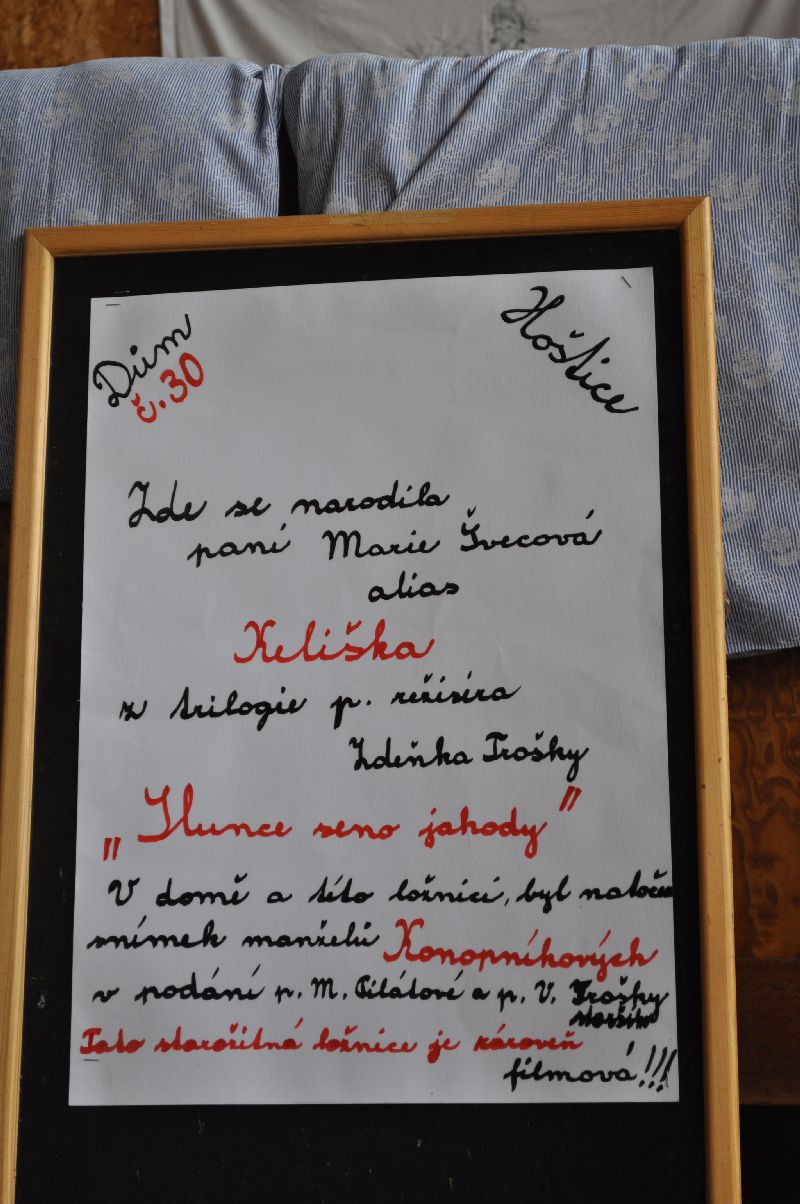 Dům
č. 30
Hoštice
Zde se narodila
paní Marie Švecová
alias
Keliška
z trilogie p. režiséra
Zdeňka Trošky
„Slunce seno jahody"
V domě a této ložnici, byl natočen
snímek manželů Konopníkových
v podání p. M. Pilátové a p. V. Trošky
staršího
Tato starožitná ložnice je zároveň
filmová!!!